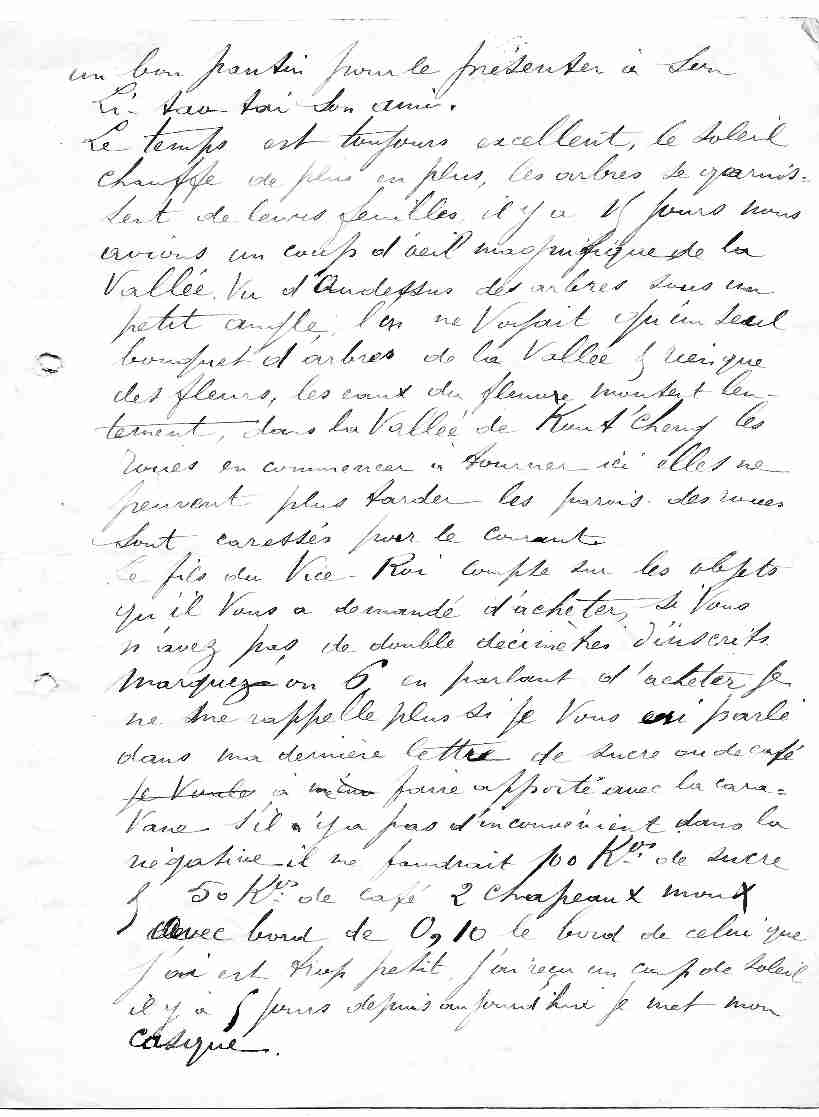 un bon pantin pour le présenter à Son
Li-tao-tai son ami.
Le temps est toujours excellent, le soleil
chauffe de plus en plus, les arbres se garnis-
sent de leurs feuilles. il y a 15 jours nous
avions un coup d'oeil magnifique de la
Vallée. Vu d'Audessus des arbres sous un
petit angle, l'on ne Voyait qu'un seul
bouquet d'arbres de la Vallée & rien que
des fleurs, les eaux du fleuve montent len-
tement, dans la Vallée de Kun t'cheng les
roues en commencer à tourner ici elles ne
peuvent plus tarder les parois des roues
sont caressés par le courant
Le fils du Vice-Roi compte sur les objets
qu'il Vous a demandé d'acheter, si Vous
n'avez pas de double décimètres d'inscrits
marquez-ôn 6, en parlant d'acheter Je
ne me rappelle plus si je Vous en ai parlé
dans ma dernière lettre de sucre ou de café
à faire apporté avec la cara=
Vane s'il n'y a pas d'inconvénient dans la
négative il me faudrait 100 Kos de sucre
& 50 Kos de café 2 chapeaux moux
avec bord de 0,10 le bord de celui que
j'ai est trop petit, j'ai reçu un coup de soleil
il y a 5 jours depuis aujourd'hui je met mon
casque.